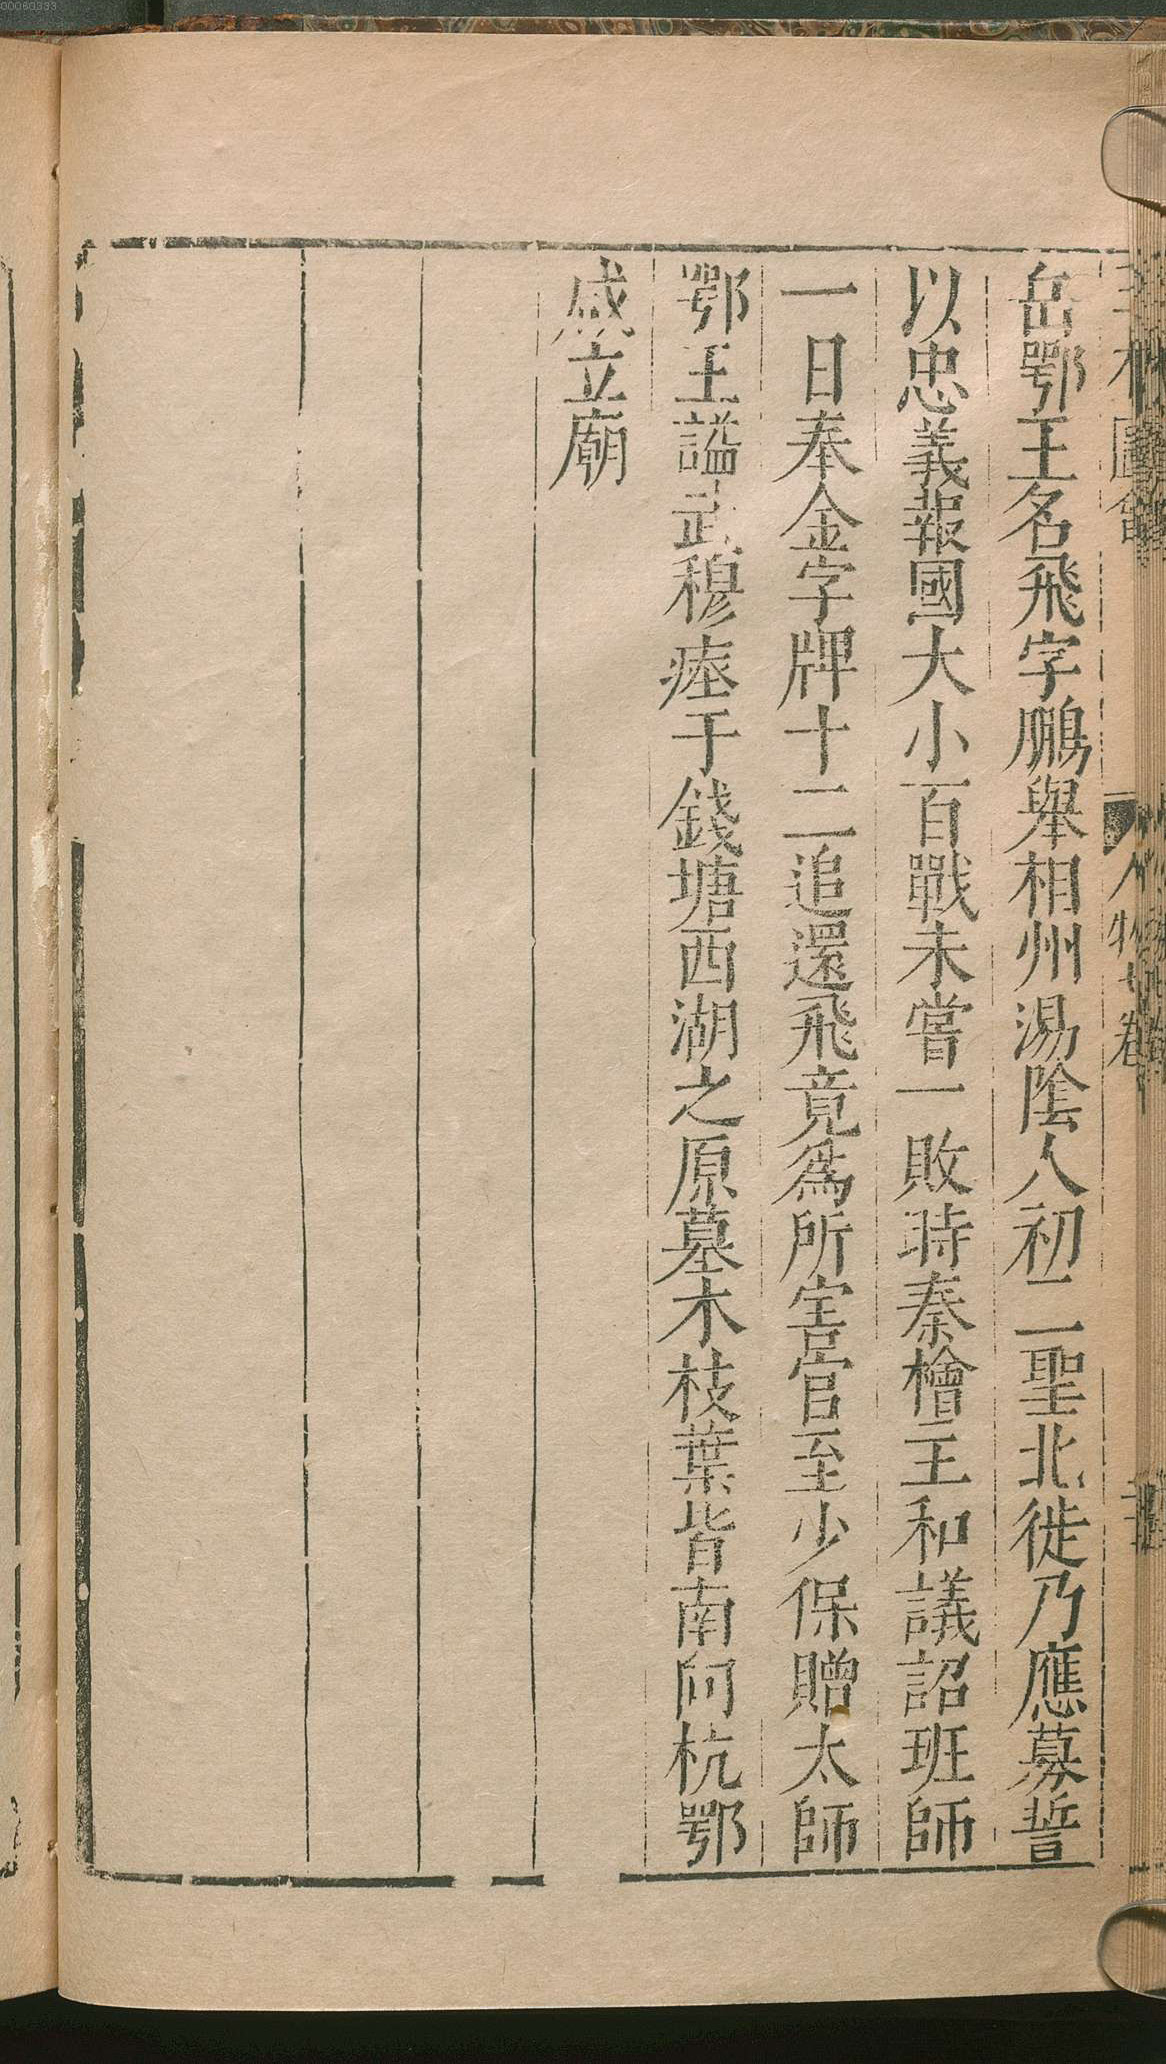 岳鄂王名飛字鵬舉相州湯陰人初二聖北徙乃應募誓
以忠義報國大小百戰未嘗一敗時秦檜主和議詔班師
一日奉金字牌十二追還飛竟為所害官至少保贈太師
鄂王謚武穆瘞于錢塘西湖之原墓木枝葉皆南向杭鄂
咸立廟
圖會
人物
卷
00060333